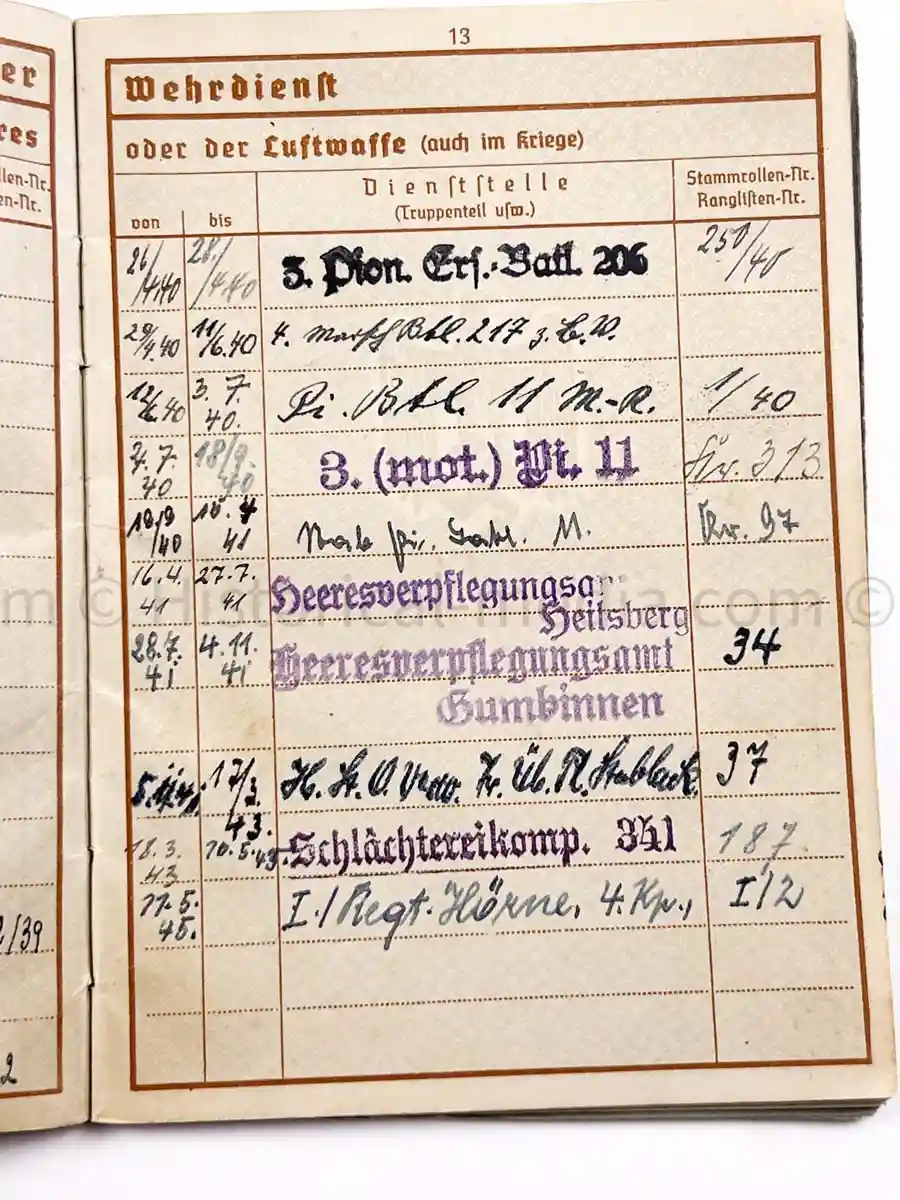 er
res
llen-Nr.
en-Nr.
2/39
2
13
Wehrdienst
oder der Luftwaffe (auch im Kriege)
von bis Dienststelle (Truppenteil usw.) Stammrollen-Nr. Ranglisten-Nr.
26/4.40 28./4.40 3. Pion. Ers.-Batl. 206 250/40
29/4.40 11/6.40 4. Marsch Btl. 217 z. b. V.
12/6.40 3.7.40. Pi. Btl. 11 M.-R. 1/40
4.7.40 18/9.40 3. (mot.) Pi. 11 Nr. 313
19/9/40 15.4 41 Stab Pi. Batl. 11. Nr. 97
16.4.41 27.7.41 Heeresverpflegungsa Heilsberg
28.7.41 4.11.41 Heeresverpflegungsamt Gumbinnen 34
5.11.41 17/3.43. H. St. O. Verw. Tr. Üb. Pl. Stablack 37
18.3.43 10.5.45 Schlächtereikomp. 341 187.
11.5.45. I./Regt. Hörne, 4. Kp., I/2
m © Historical-media.com ©